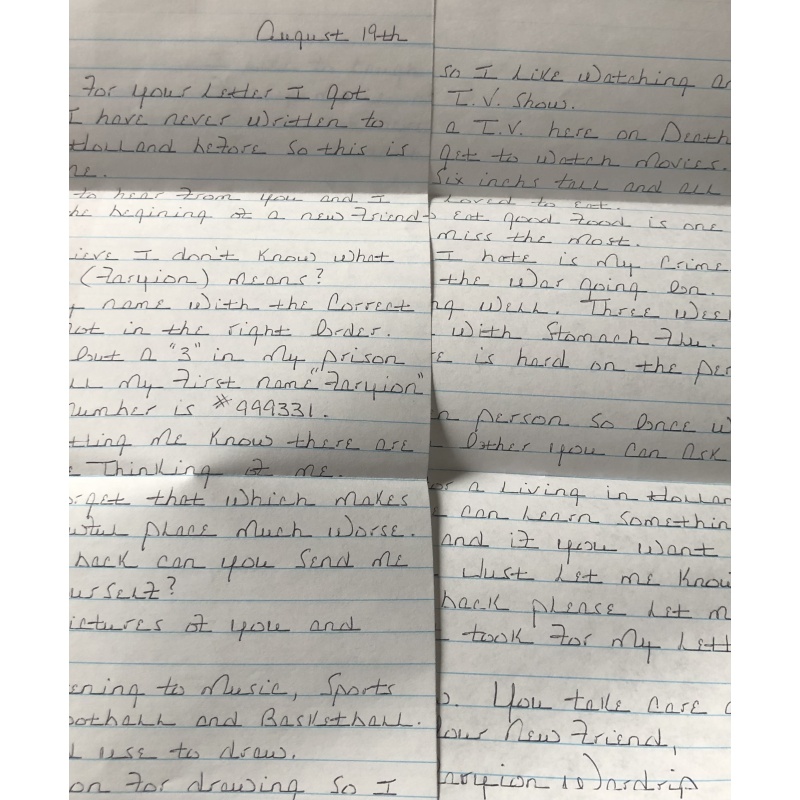 August 19th
For your Letter I got
I have never written to
Holland before so this is
to hear from you and I
begining of a new friend
I don't know what
(Faryion) means?
name with the Correct
not in the right order.
but a "3" in my prison
my First name "Faryion"
number is #999331.
me know there are
Thinking of me.
that which makes
place much worse.
back can you send me
pictures of you and
to Music, Sports
and Basketball.
use to draw.
on for drawing so I
so I Like watching
T.V. Show.
a T.V. here on Death
get to watch movies.
Six inchs tall and all
Loved to Eat.
Eat good food is one
miss the most.
I hate is my Crime
the war going on.
well. Three
with Stomach Flu.
is hard on the
person so once
other you can ask
a living in
can learn
and if you want
Just let me know
back please let
took for my
You take care
New Friend,
Faryion Wardrip